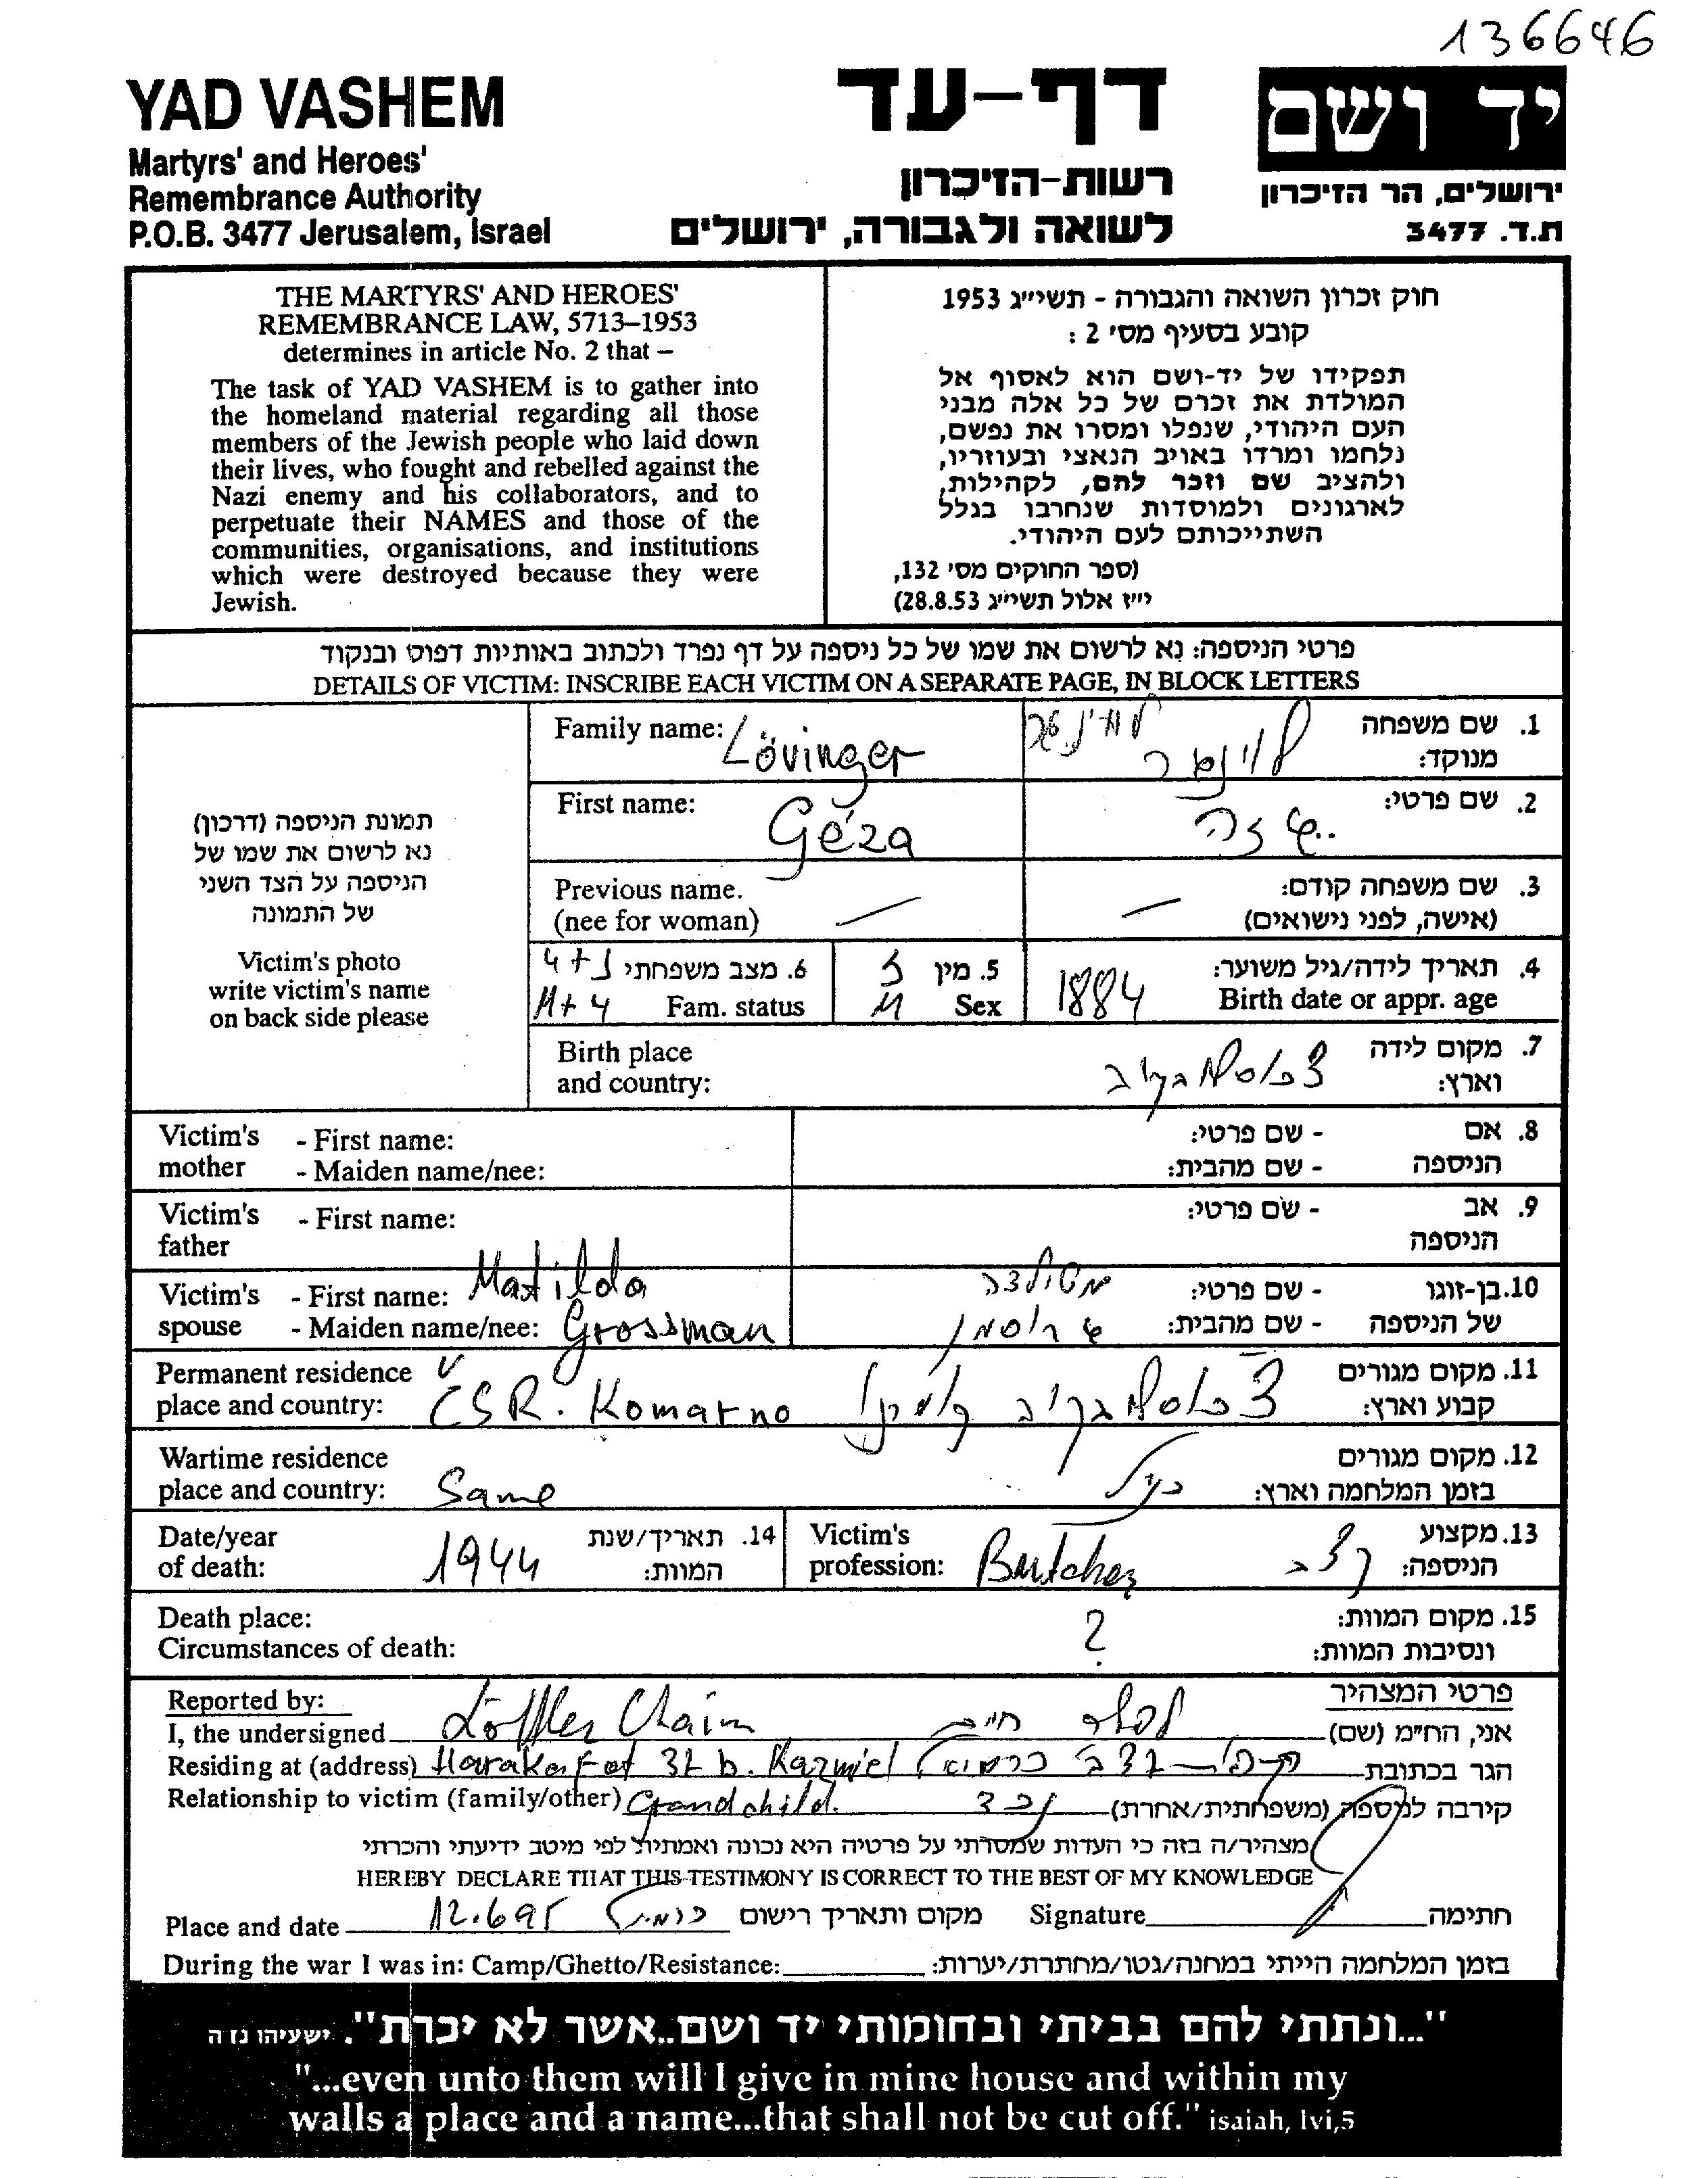 136646
YAD VASHEM
Martyrs' and Heroes'
Remembrance Authority
P.O.B. 3477 Jerusalem, Israel
דף-עד
רשות-הזיכרון
לשואה ולגבורה, ירושלים
יד ושם
ירושלים, הר הזיכרון
ת.ד. 3477
THE MARTYRS' AND HEROES'
REMEMBRANCE LAW, 5713–1953
determines in article No. 2 that –
The task of YAD VASHEM is to gather into
the homeland material regarding all those
members of the Jewish people who laid down
their lives, who fought and rebelled against the
Nazi enemy and his collaborators, and to
perpetuate their NAMES and those of the
communities, organisations, and institutions
which were destroyed because they were
Jewish.
חוק זכרון השואה והגבורה - תשי״ג 1953
קובע בסעיף מס' 2 :
תפקידו של יד-ושם הוא לאסוף אל
המולדת את זכרם של כל אלה מבני
העם היהודי, שנפלו ומסרו את נפשם,
נלחמו ומרדו באויב הנאצי ובעוזריו,
ולהציב שם וזכר להם, לקהילות,
לארגונים ולמוסדות שנחרבו בגלל
השתייכותם לעם היהודי.
(ספר החוקים מס' 132,
י״ז אלול תשי״ג 28.8.53)
פרטי הניספה: נא לרשום את שמו של כל ניספה על דף נפרד ולכתוב באותיות דפוס ובנקוד
DETAILS OF VICTIM: INSCRIBE EACH VICTIM ON A SEPARATE PAGE, IN BLOCK LETTERS
תמונת הניספה (דרכון)
נא לרשום את שמו של
הניספה על הצד השני
של התמונה
Victim's photo
write victim's name
on back side please
Family name: Lövinger
לוינגר
1. שם משפחה
מנוקד:
First name: Géza
גזה
2. שם פרטי:
Previous name. —
(nee for woman)
3. שם משפחה קודם: —
(אישה, לפני נישואים)
6. מצב משפחתי נ+4
Fam. status M+4
5. מין ז
Sex M
4. תאריך לידה/גיל משוער:
Birth date or appr. age 1884
Birth place
and country:
7. מקום לידה
וארץ: צ'כוסלובקיה
Victim's - First name:
mother - Maiden name/nee:
8. אם - שם פרטי:
הניספה - שם מהבית:
Victim's - First name:
father
9. אב - שם פרטי:
הניספה
Victim's - First name: Matilda
spouse - Maiden name/nee: Grossman
10. בן-זוגו - שם פרטי: מטילדה
של הניספה - שם מהבית: גרוסמן
Permanent residence
place and country: ČSR. Komarno
11. מקום מגורים
קבוע וארץ: צ'כוסלובקיה
Wartime residence
place and country: Same
12. מקום מגורים
בזמן המלחמה וארץ: כנ"ל
Date/year
of death: 1944
14. תאריך/שנת
המוות:
Victim's
profession: Butcher
13. מקצוע
הניספה: קצב
Death place:
Circumstances of death: ?
15. מקום המוות:
ונסיבות המוות:
Reported by:
פרטי המצהיר
I, the undersigned Löffler Chaim
אני, הח״מ (שם) לפלר חיים
Residing at (address) Harakefet 32 b. Karmiel
הגר בכתובת הרקפת 32 ב כרמיאל
Relationship to victim (family/other) Grandchild.
קירבה לניספה (משפחתית/אחרת) נכד
מצהיר/ה בזה כי העדות שמסרתי על פרטיה היא נכונה ואמתית לפי מיטב ידיעתי והכרתי
HEREBY DECLARE THAT THIS TESTIMONY IS CORRECT TO THE BEST OF MY KNOWLEDGE
Place and date 12.6.95 כרמיאל מקום ותאריך רישום Signature חתימה
During the war I was in: Camp/Ghetto/Resistance: בזמן המלחמה הייתי במחנה/גטו/מחתרת/יערות:
"...ונתתי להם בביתי ובחומותי יד ושם..אשר לא יכרת". ישעיהו נו ה
"...even unto them will I give in mine house and within my
walls a place and a name...that shall not be cut off." isaiah, lvi,5